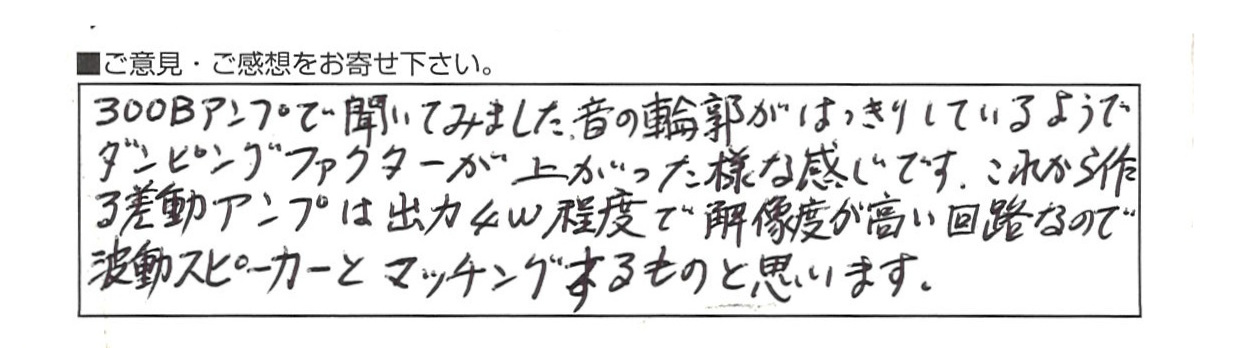 ■ご意見・ご感想をお寄せ下さい。
300Bアンプで聞いてみました。音の輪郭がはっきりしているようで
ダンピングファクターが上がった様な感じです。これから作
る差動アンプは出力4W程度で解像度が高い回路なので
波動スピーカーとマッチングするものと思います。